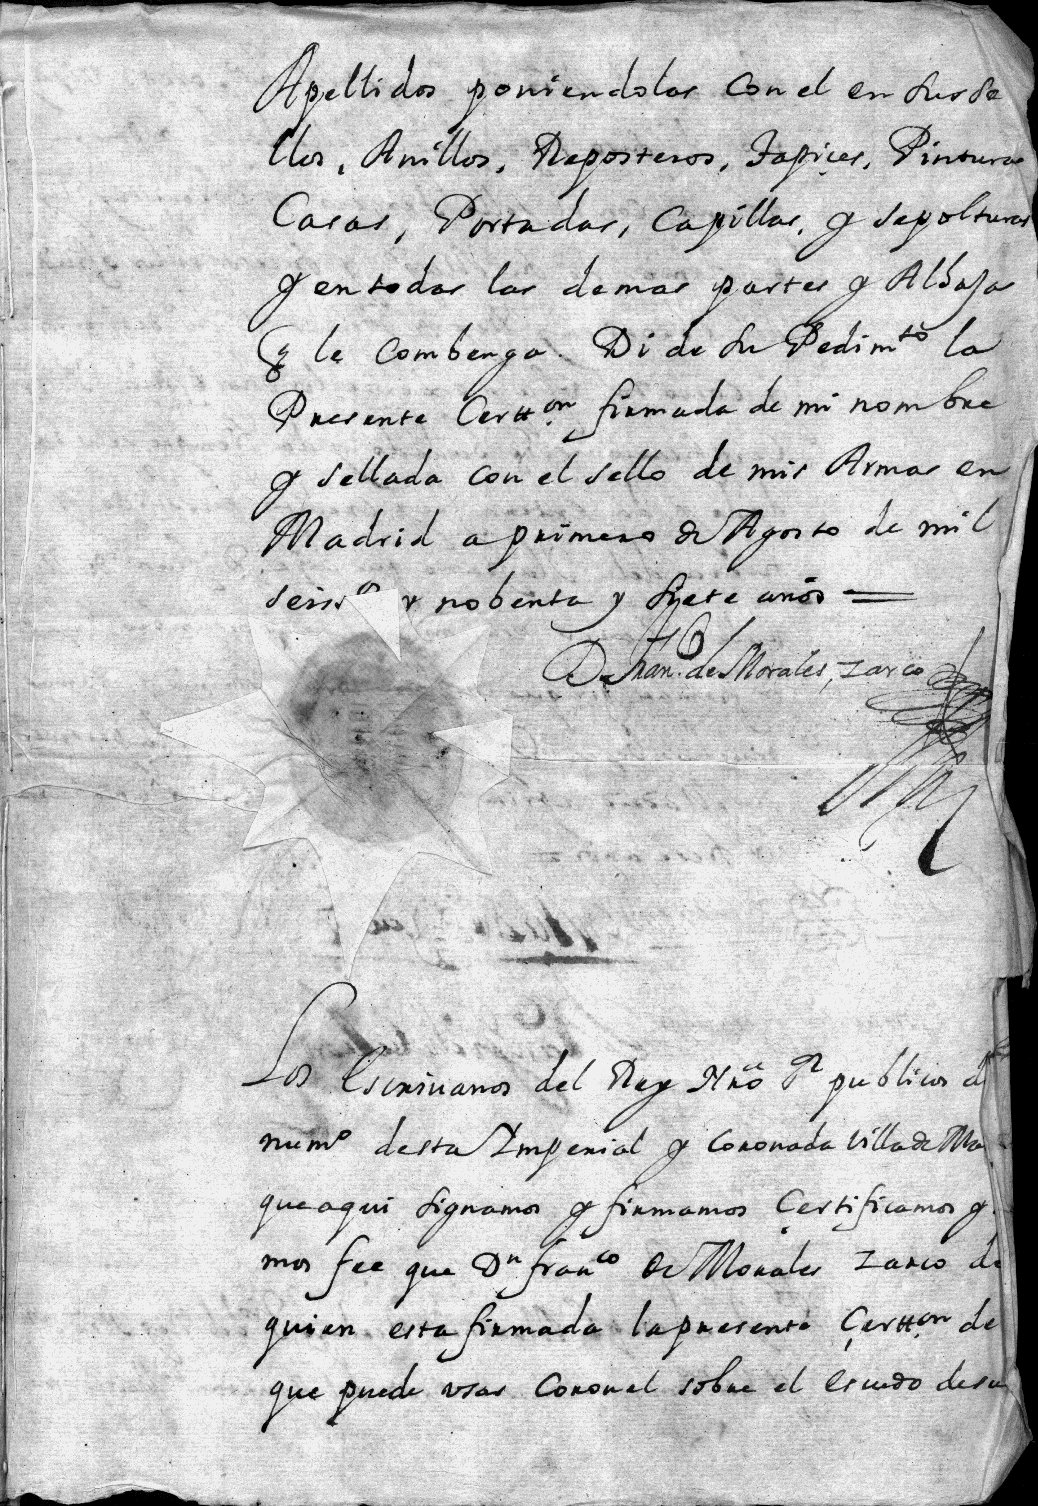 Apellidos poniendolas con el en sus se
llos, Anillos, Reposteros, Tapiçes, Pinturas
Casas, Portadas, Capillas, y sepolturas
y en todas las demas partes y Alhajas
q le combenga. Di de su Pedimto la
Presente Certton firmada de mi nombre
y sellada con el sello de mis Armas en
Madrid a primero de Agosto de mil
seissos y nobenta y siete años =
Dn Fran.co de Morales, zarco
Los Escrivanos del Rey Nro Sr publicos d
numo desta Imperial y Coronada Villa de Ma
que aqui signamos y firmamos Çertificamos y
mos fee que Dn franco de Morales zarco de
quien esta firmada la presente Çertton de
que puede usar Coronel sobre el escudo de su